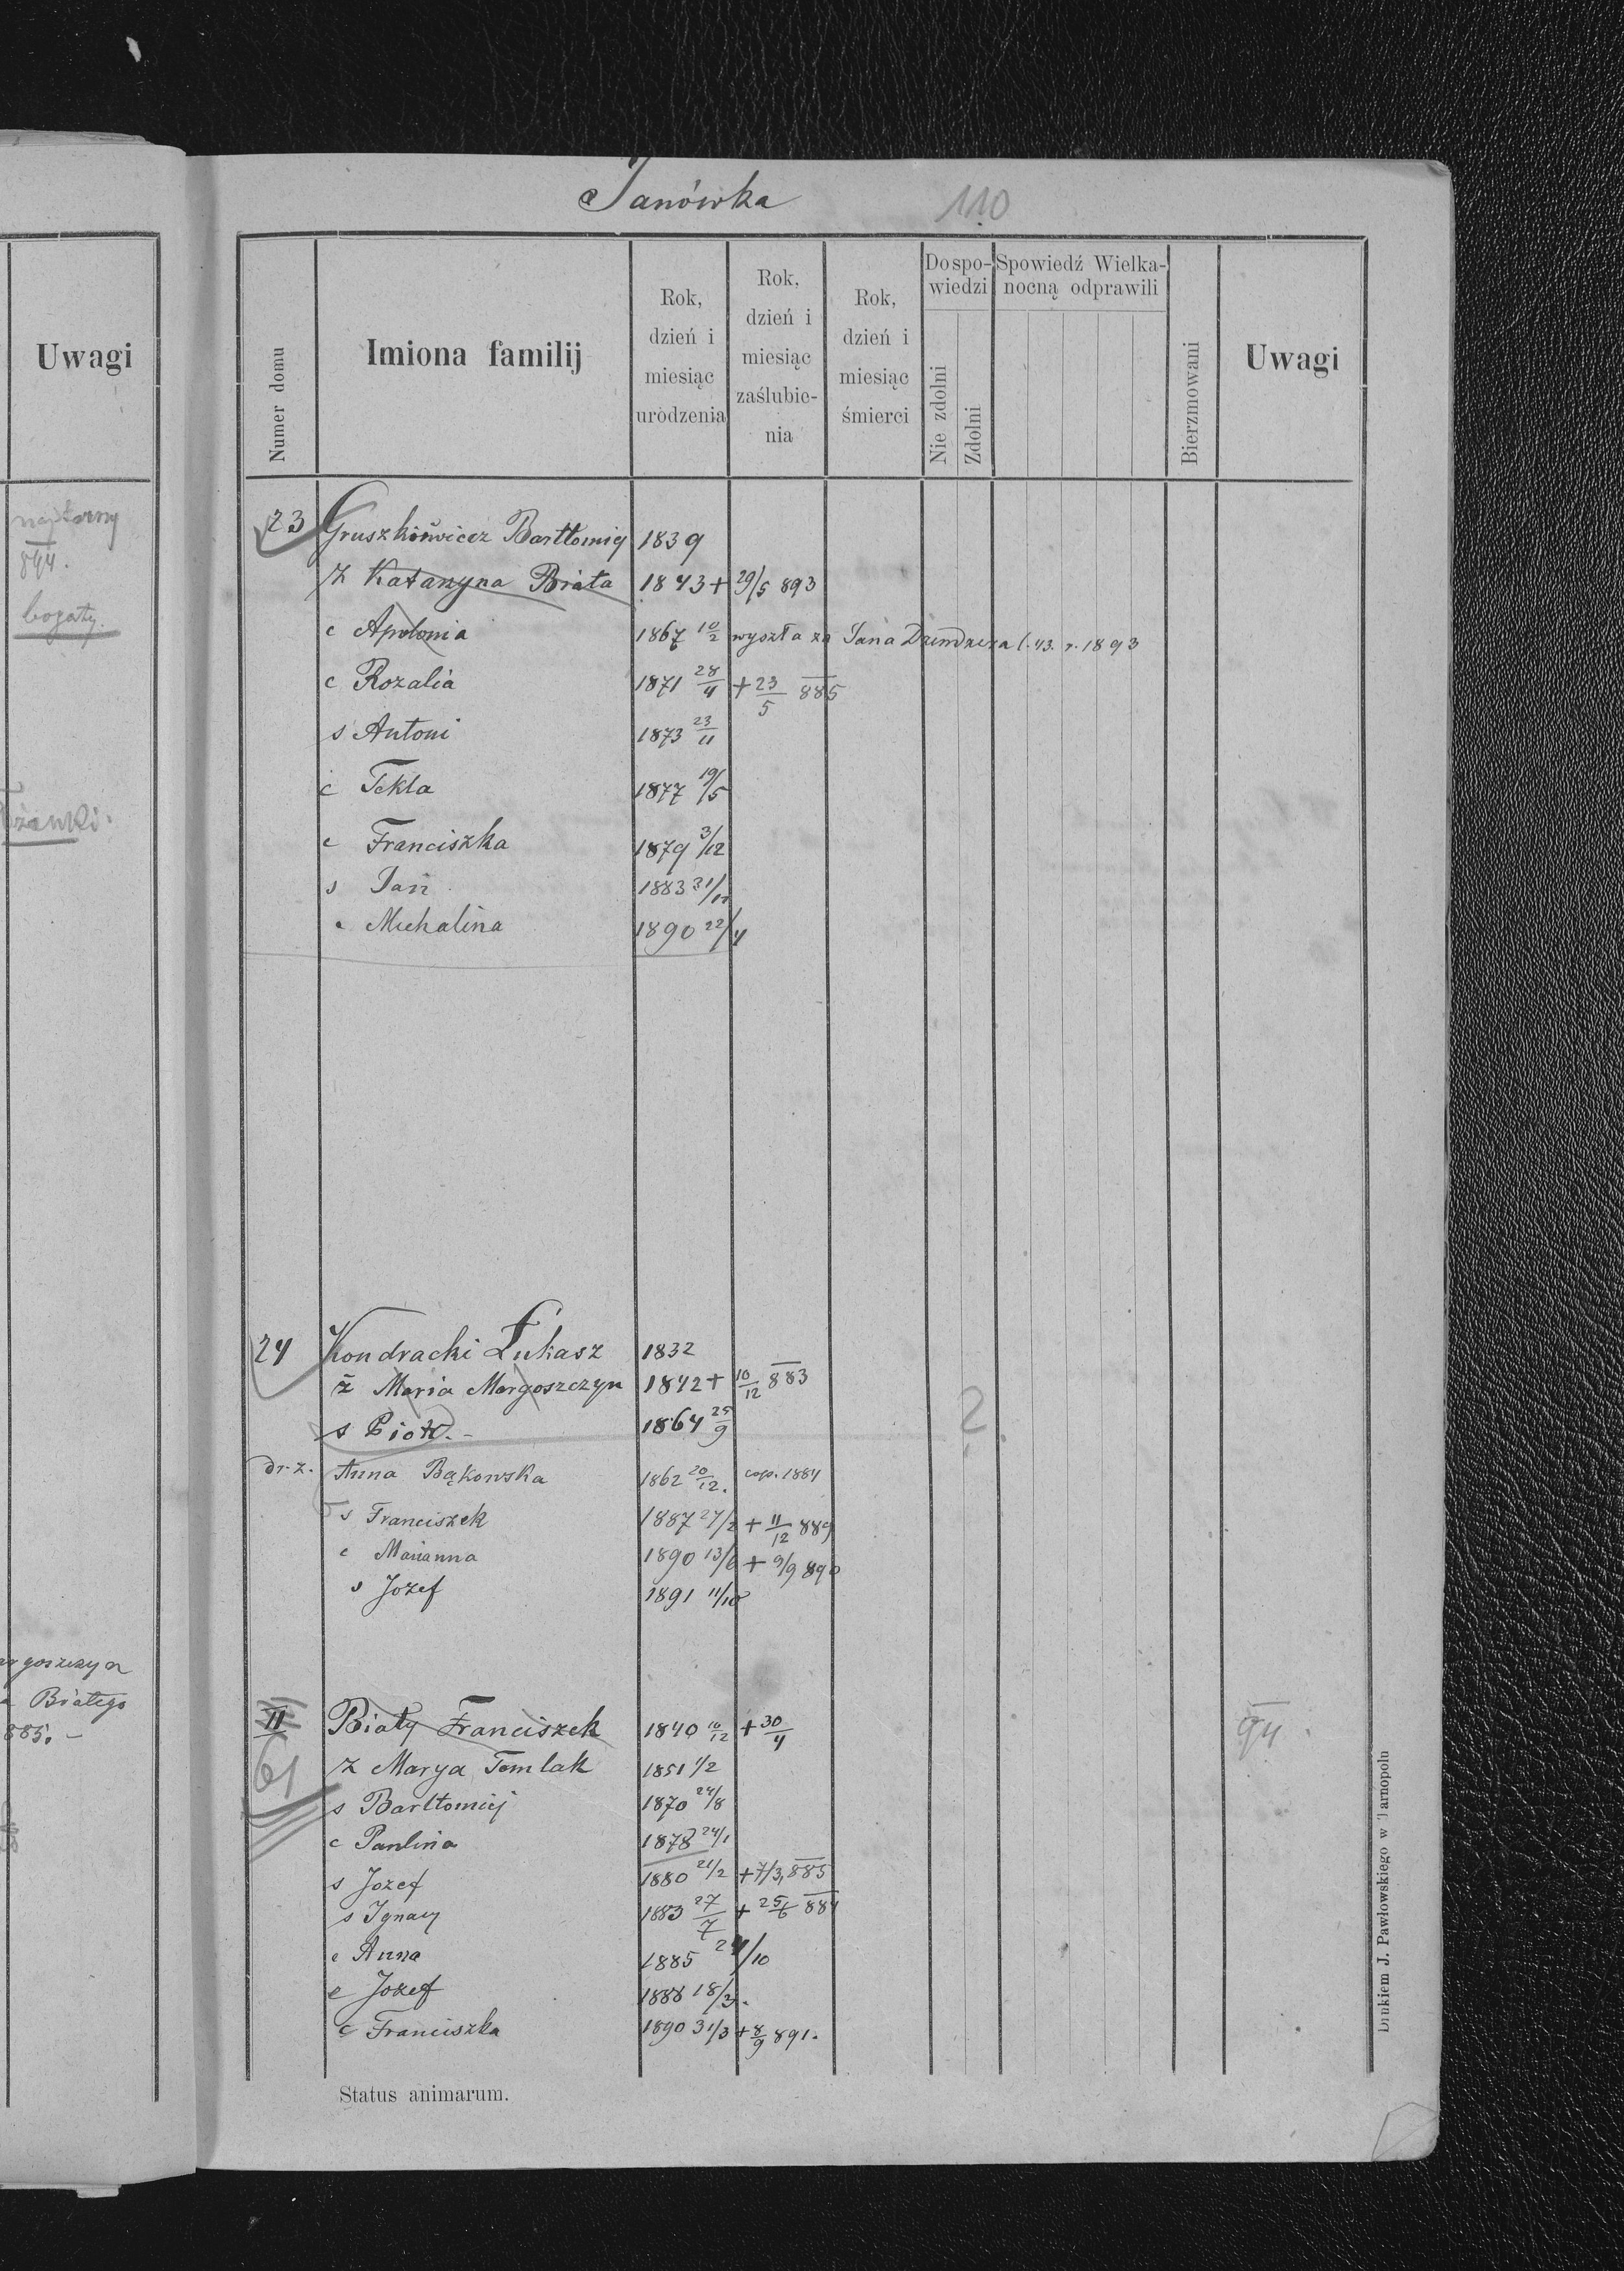 Janówka 110
Uwagi
Numer domu
Imiona familij
Rok, dzień i miesiąc urodzenia
Rok, dzień i miesiąc zaślubie-nia
Rok, dzień i miesiąc śmierci
Do spo-wiedzi
Nie zdolni
Zdolni
Spowiedź Wielka-nocną odprawili
Bierzmowani
Uwagi
894.
bogaty.
23 Gruszkiewicz Bartłomiej 1839
ż Katarzyna Biała 1843 + 29/5 893
c Apolonia 1867 10/2 wyszła za Jana l. 43. r. 1893
c Rozalia 1871 28/4 + 23/5 885
s Antoni 1873 23/11
c Tekla 1877 19/5
c Franciszka 1879 3/12
s Jan 1883
c Michalina 1890 22/4
24 Kondracki Łukasz 1832
ż Maria Margoszczyn 1842 + 10/12 883
s Piotr. - 1864 25/9
2
dr. ż. Anna Bąkowska 1862 20/12. cop. 1884
s Franciszek 1887 27/2 + 11/12 889
c Marianna 1890 13/6 + 9/9 890
s Jozef 1891 11/10
goszczyn
Białego
885. -
II Biały Franciszek 1840 10/12 + 30/4 94
61
ż Marya Temlak 1851 1/2
s Bartłomiej 1870 24/8
c Paulina 1878 24/1
s Jozef 1880 21/2 + 7/3, 885
s Ignacy 1883 27/7 + 25/6 884
c Anna 1885 24/10
c Jozef 1888 18/3.
c Franciszka 1890 31/3 + 8/9 891.
Status animarum.
Drukiem J. Pawłowskiego w Tarnopolu